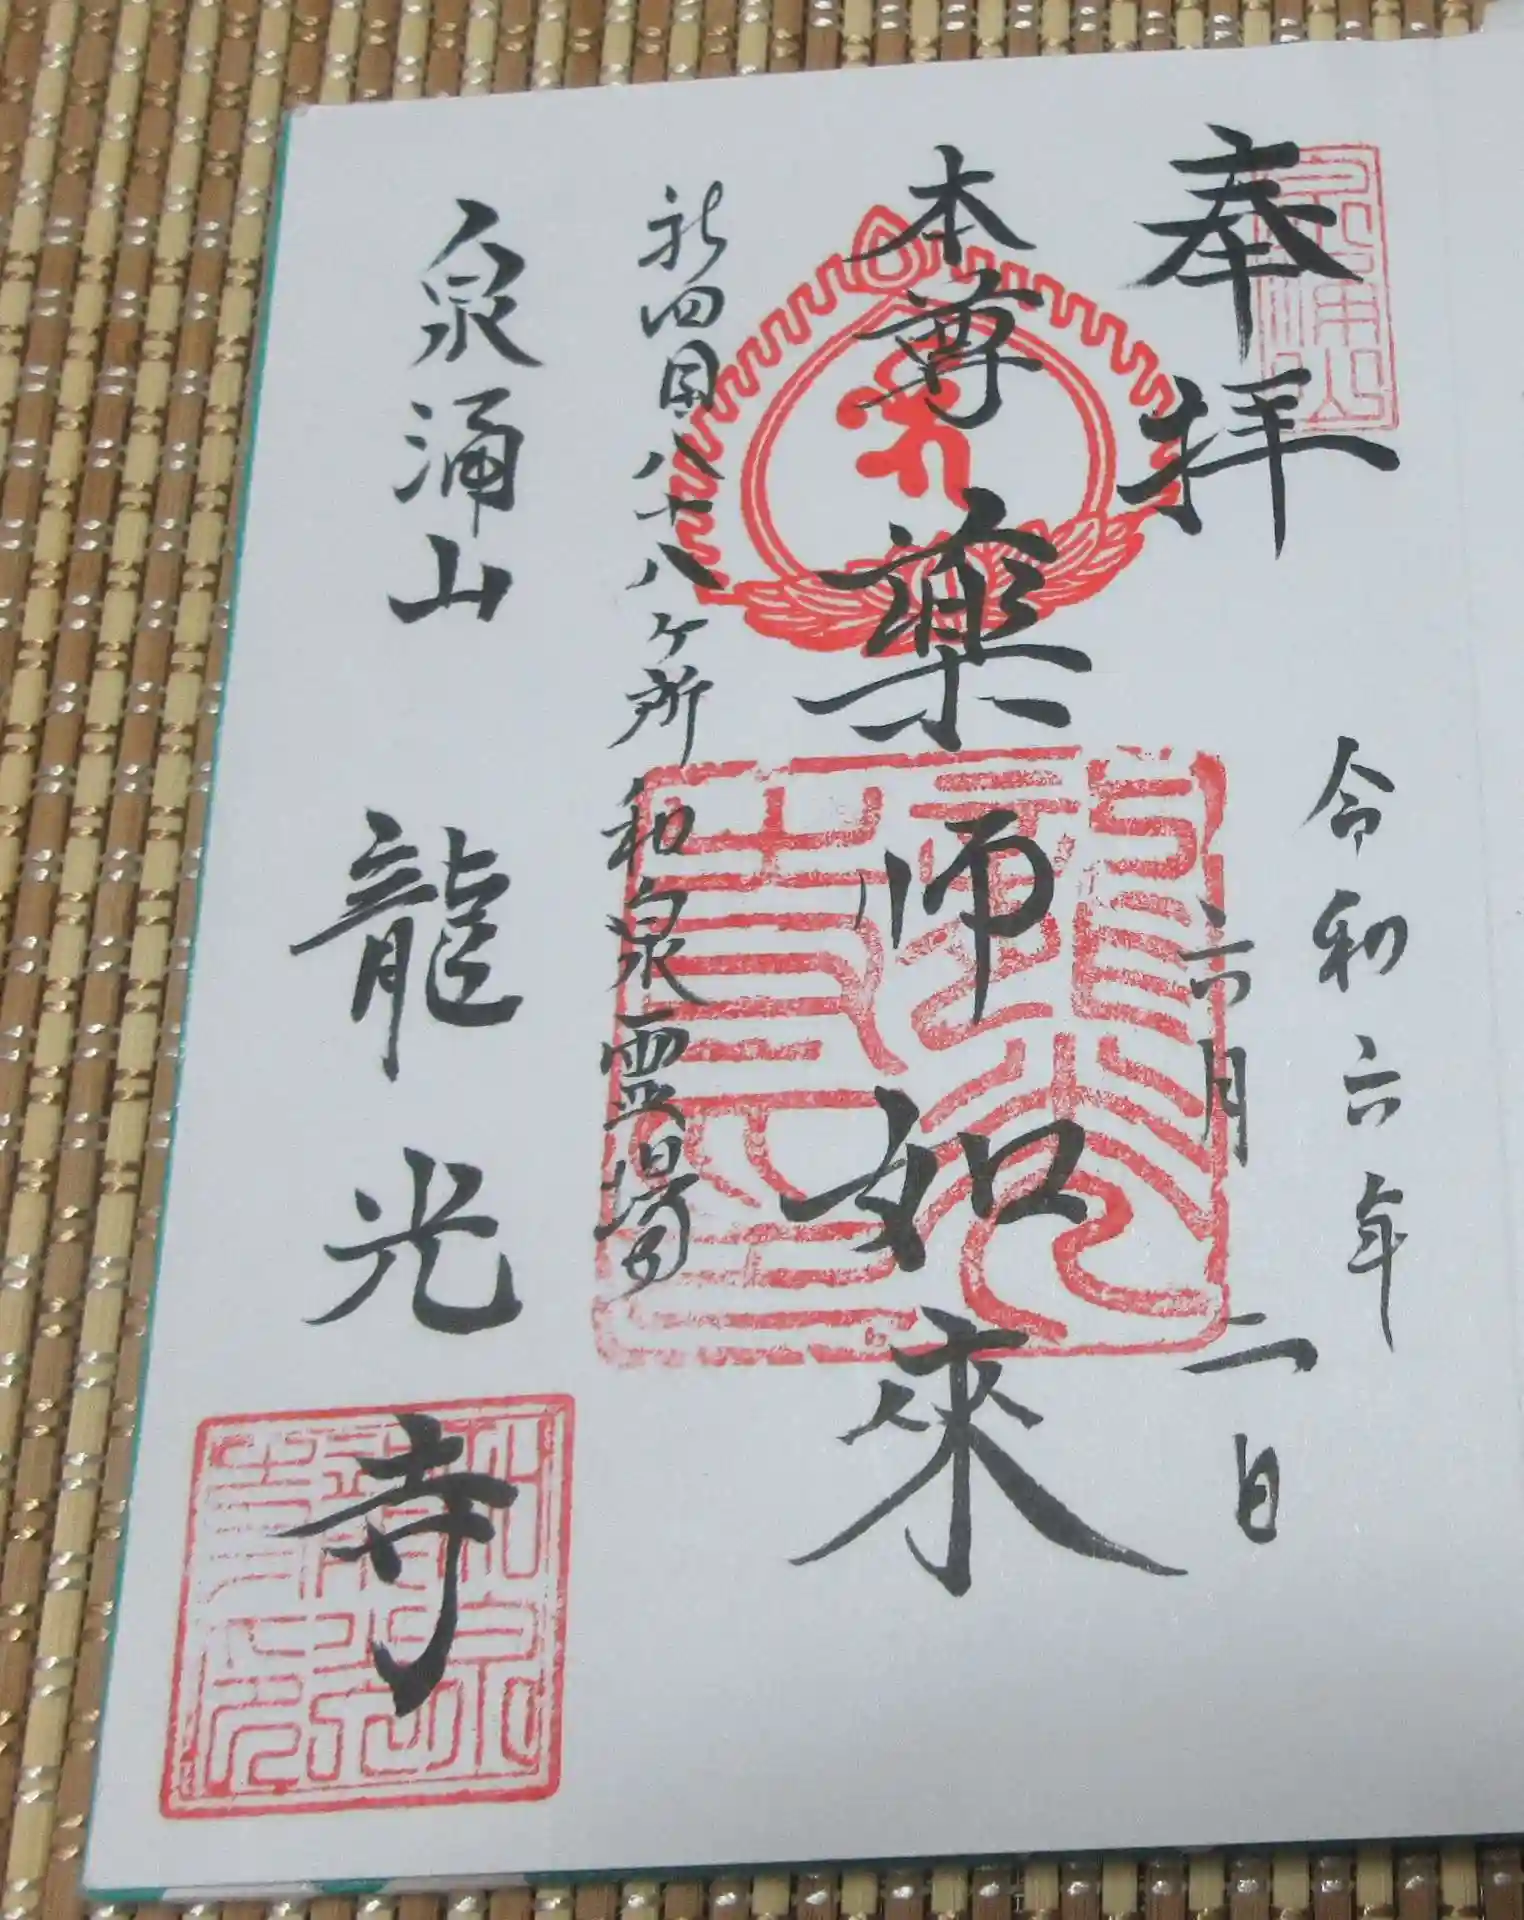 奉拝
令和六年
六月二日
本尊 薬師如来
新四国八十八ヶ所和泉霊場
泉涌山
龍光寺